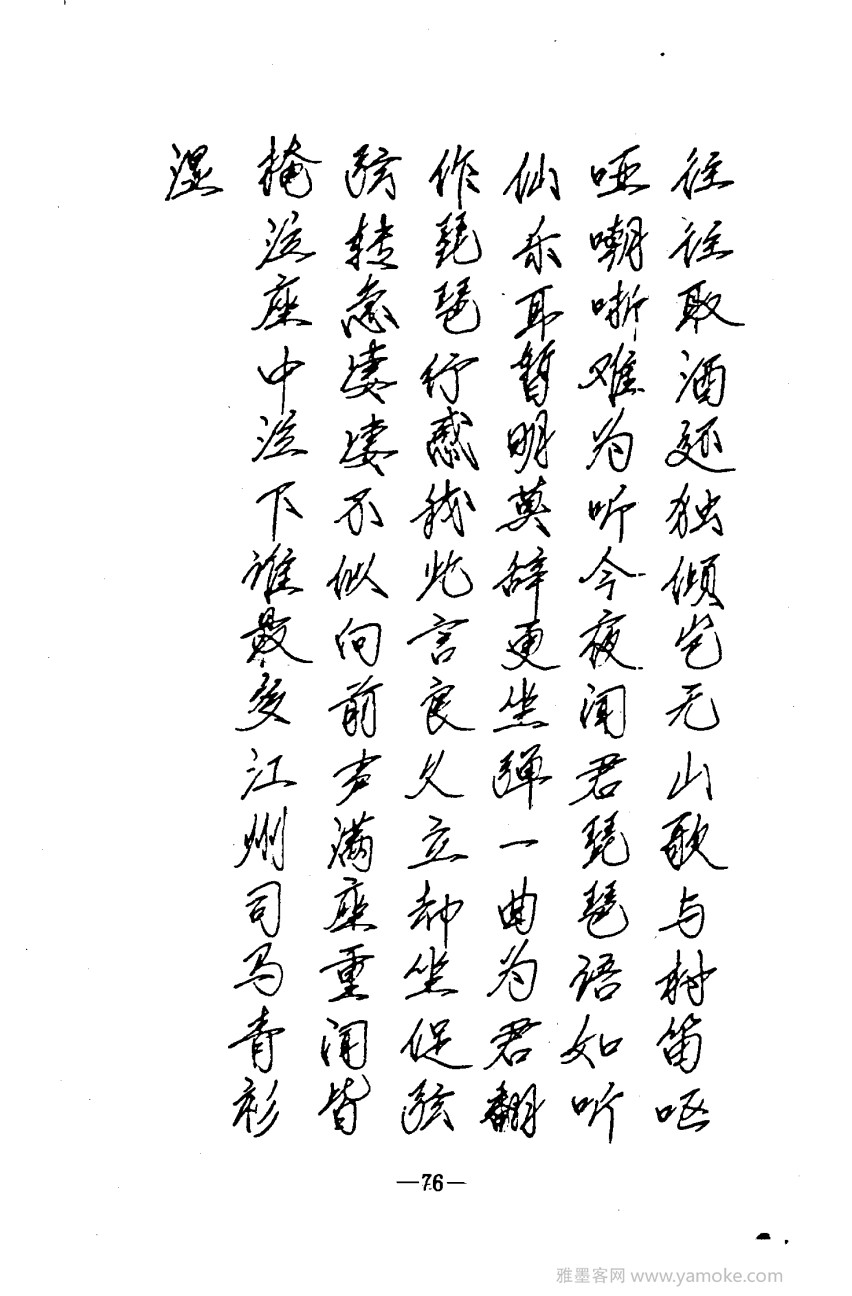 往往取酒还独倾岂无山歌与村笛呕
哑嘲哳难为听今夜闻君琵琶语如听
仙乐耳暂明莫辞更坐弹一曲为君翻
作琵琶行感我此言良久立却坐促弦
弦转急凄凄不似向前声满座重闻皆
掩泣座中泣下谁最多江州司马青衫
湿
—76—
雅墨客网 www.yamoke.com